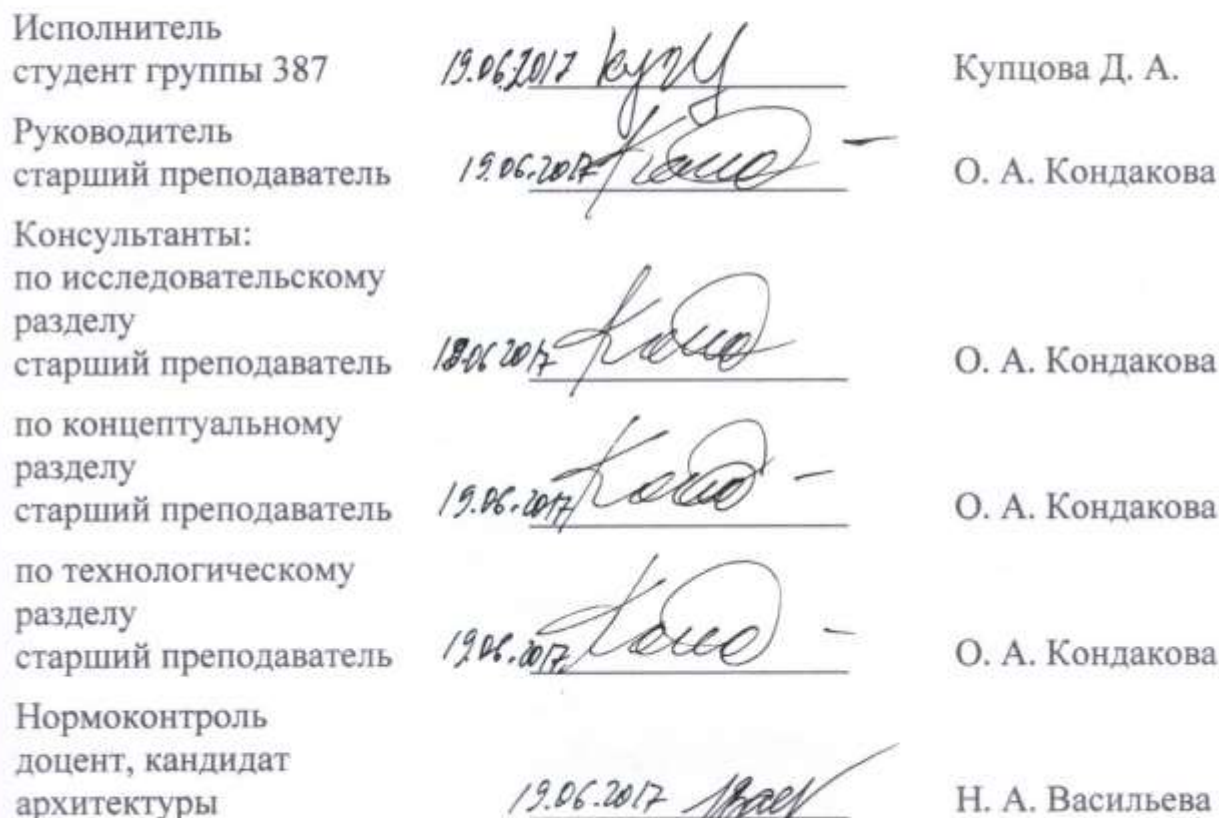 Исполнитель
студент группы 387 19.06.2017 Купцова Д. А.
Руководитель
старший преподаватель 19.06.2017 О. А. Кондакова
Консультанты:
по исследовательскому
разделу
старший преподаватель О. А. Кондакова
по концептуальному
разделу
старший преподаватель 19.06.2017 О. А. Кондакова
по технологическому
разделу
старший преподаватель 19.06.2017 О. А. Кондакова
Нормоконтроль
доцент, кандидат
архитектуры 19.06.2017 Н. А. Васильева